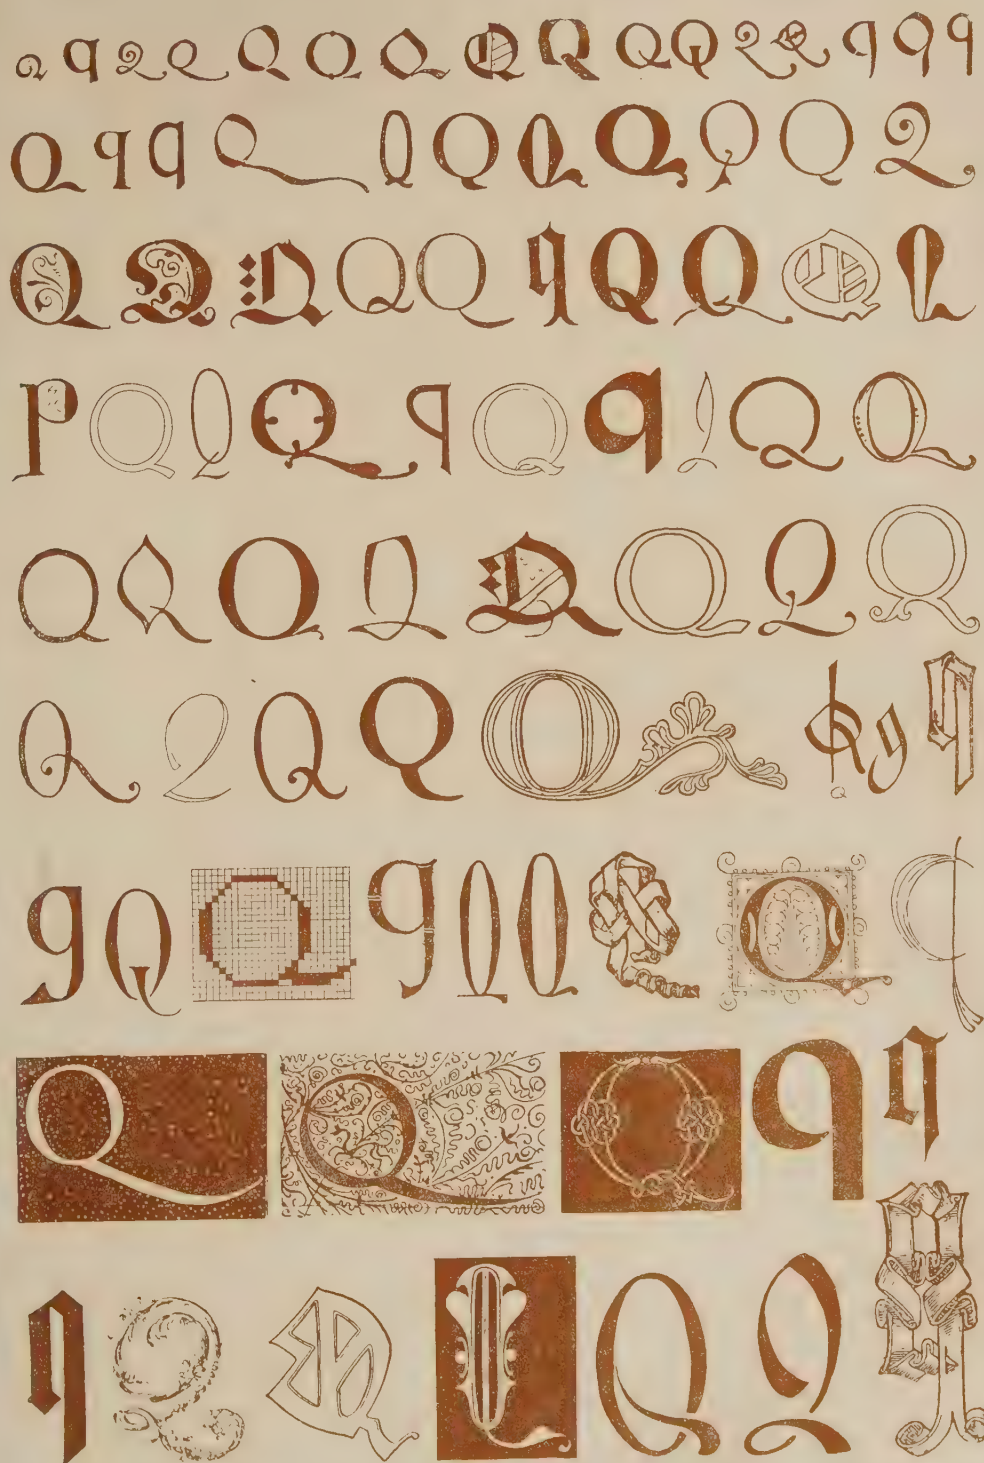 Q q Q Q Q Q Q Q Q Q Q Q Q q q q
Q q q Q Q Q Q Q Q Q Q
Q Q Q Q Q q Q Q Q Q
q Q Q Q q Q q Q Q Q
Q Q Q Q Q Q Q Q
Q Q Q Q Q Q q q
Q
q Q Q q Q Q Q Q q
Q Q Q q q
q Q Q Q Q Q q